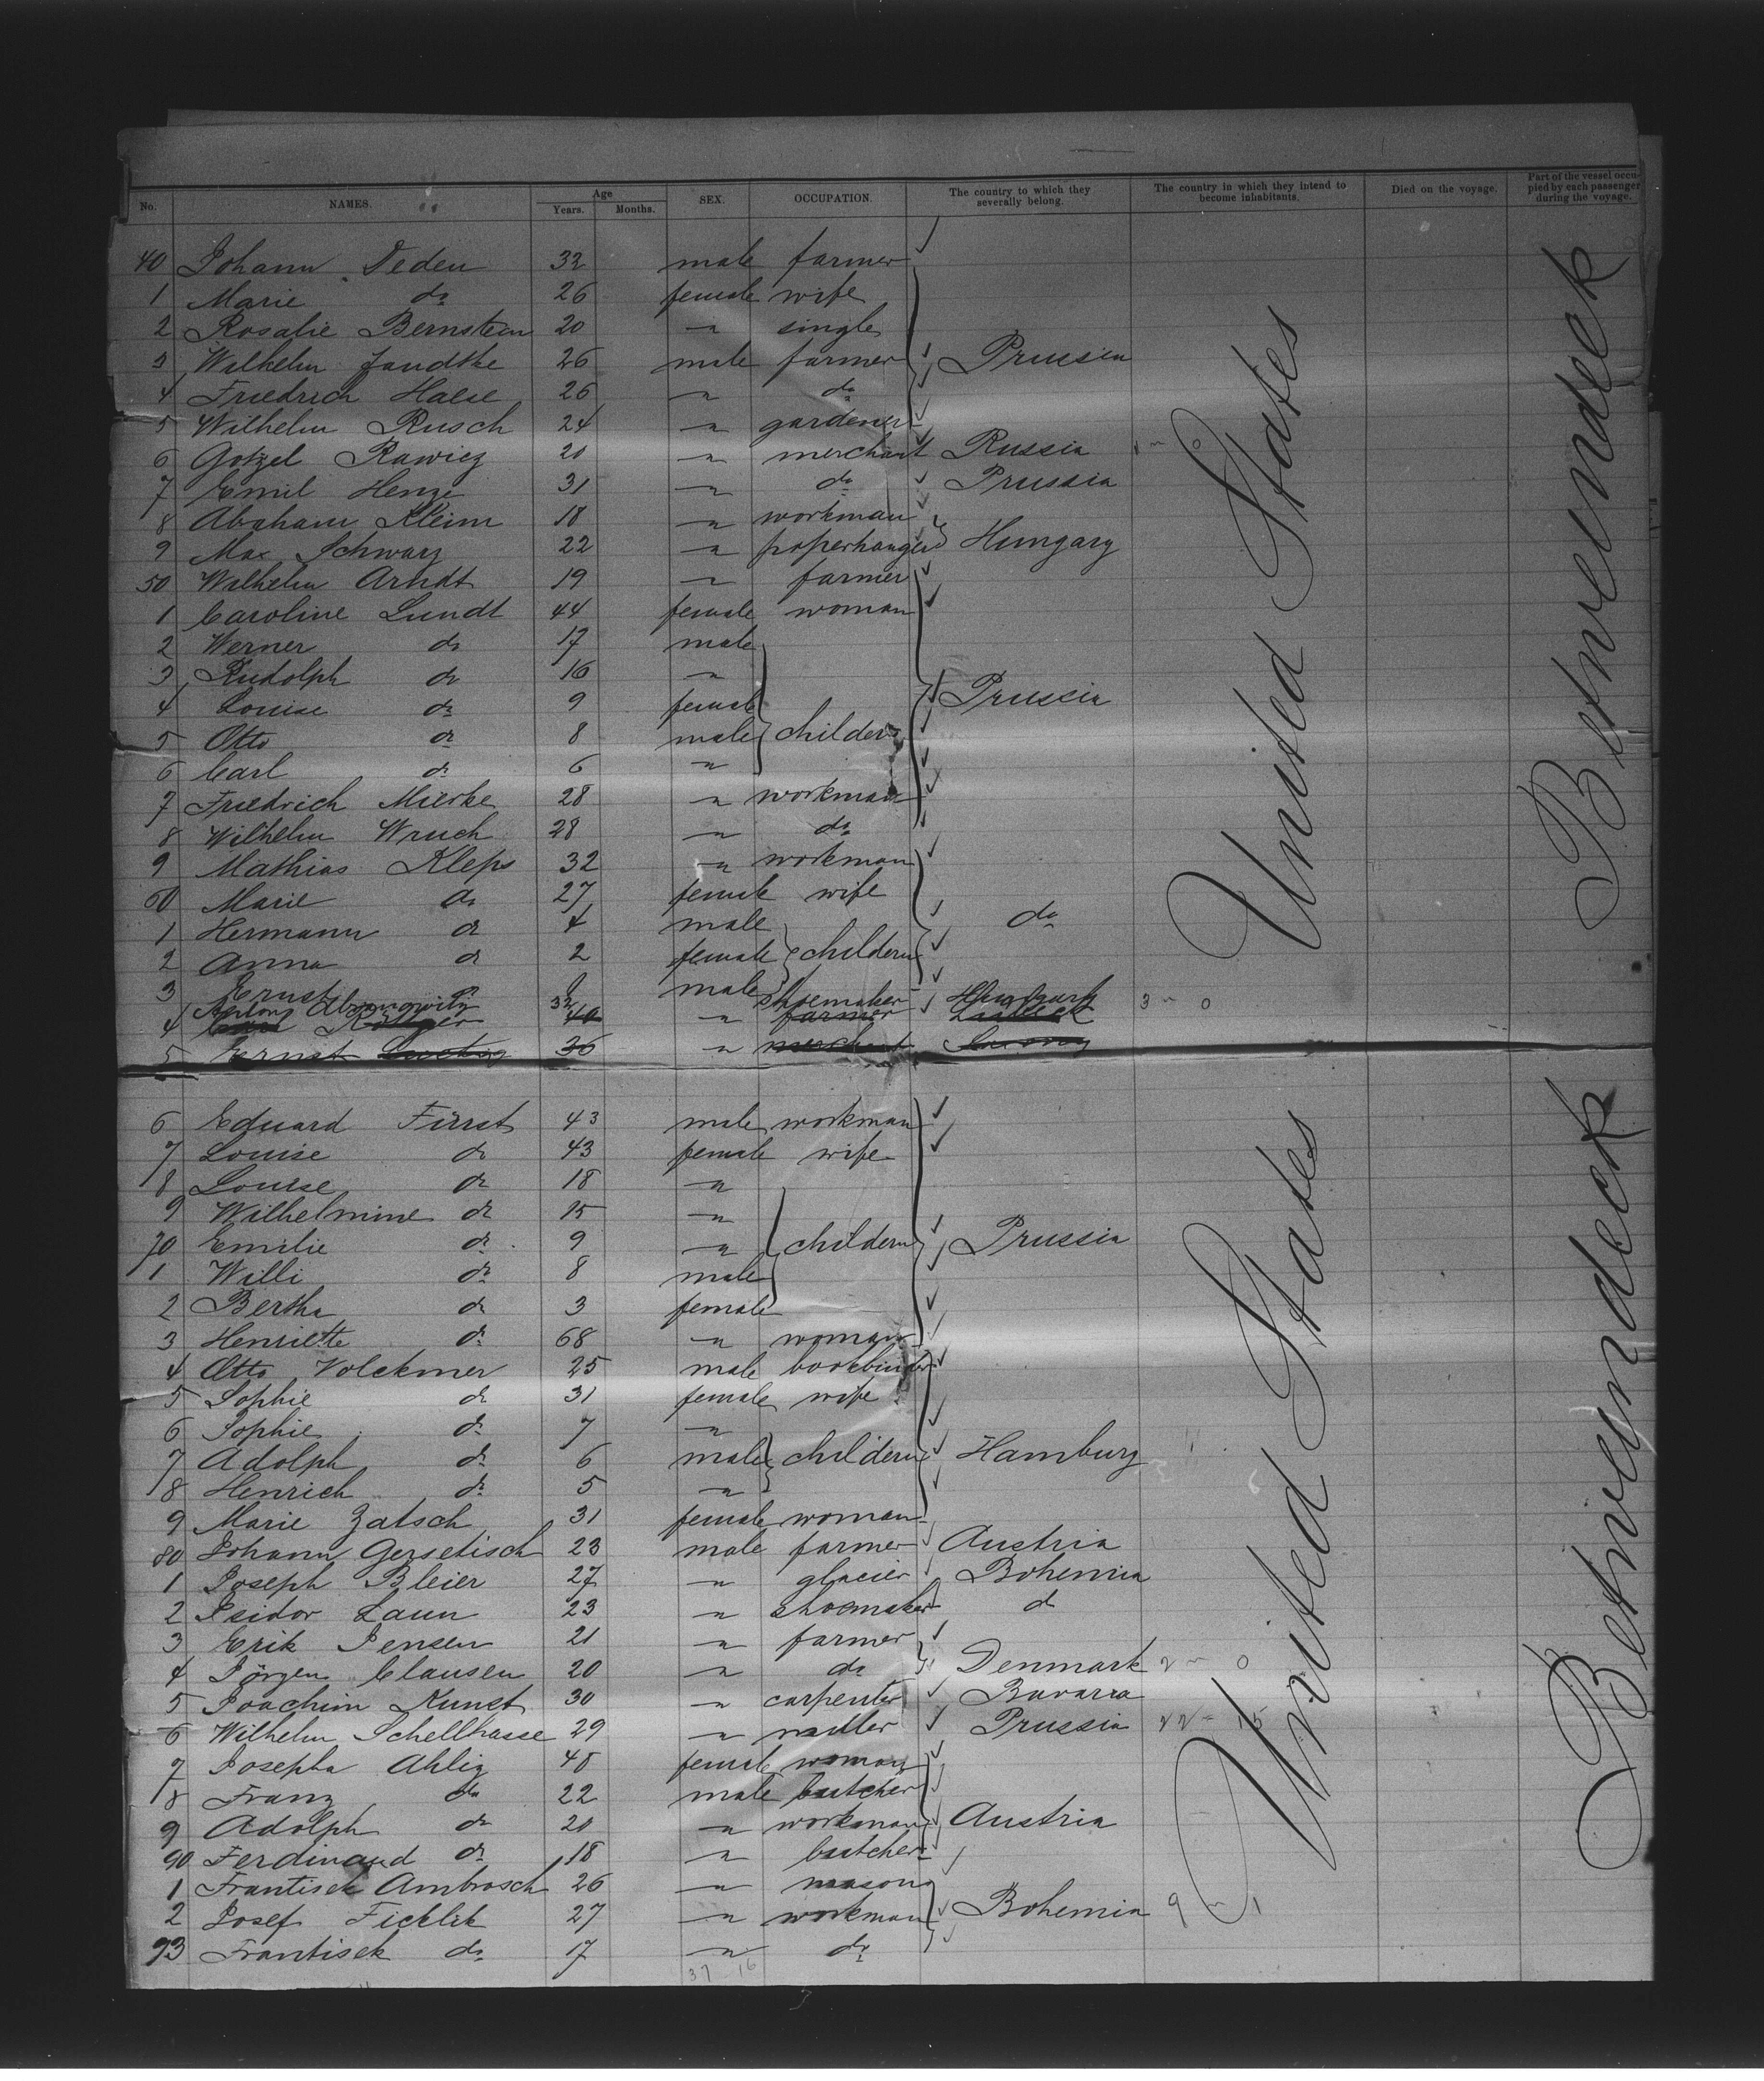 No. NAMES. Age Years. Months. SEX. OCCUPATION. The country to which they severally belong. The country in which they intend to become inhabitants. Died on the voyage. Part of the vessel occupied by each passenger during the voyage.
40 Johann Deden 32 male farmer
1 Marie do 26 female wife
2 Rosalie Bernstein 20 " single
3 Wilhelm Jandtke 26 male farmer Prussia
4 Friedrich Haese 26 " do
5 Wilhelm Rusch 24 " gardener
6 Gotzel Rawicz 20 " merchant Russia
7 Emil Henze 31 " do Prussia
8 Abraham Kleim 18 " workman
9 Max Schwarz 22 " poperhanger Hungary
50 Wilhelm Arndt 19 " farmer
1 Caroline Lundt 44 female woman
2 Werner do 17 male
3 Rudolph do 16 "
4 Louise do 9 female Prussia
5 Otto do 8 male childern
6 Carl do 6 "
7 Friedrich Mierke 28 " workman
8 Wilhelm Wruch 28 " do
9 Mathias Kleps 32 " workman
60 Marie do 27 female wife
1 Hermann do 4 male do
2 Anna do 2 female childern
3 Ernst do male
32 shoemaker
4 40 " farmer
5 Ernst 36 " merchant
6 Eduard Fürst 43 male workman
7 Louise do 43 female wife
8 Louise do 18 "
9 Wilhelmine do 15 "
70 Emilie do 9 " childern Prussia
1 Willi do 8 male
2 Bertha do 3 female
3 Henriette do 68 " woman
4 Otto Volckmer 25 male bookbinder
5 Sophie do 31 female wife
6 Sophie do 7 "
7 Adolph do 6 male childern Hamburg
8 Henrich do 5 "
9 Marie Zatsch 31 female woman
80 Johann Gersetisch 23 male farmer Austria
1 Joseph Bleier 27 " glacier Bohemia
2 Isidor Laun 23 " shoemaker do
3 Erik Jensen 21 " farmer
4 Jörgen Clausen 20 " do Denmark
5 Joachim Kunst 30 " carpenter Bavaria
6 Wilhelm Schellhasse 29 " miller Prussia
7 Josepha Ahlig 48 female woman
8 Franz do 22 male butcher
9 Adolph do 20 " workman Austria
90 Ferdinand do 18 " butcher
1 Frantisek Ambrosch 26 " mason
2 Josef Ficklik 27 " workman Bohemia
93 Frantisek do 17 " do
United States
Betweendeck
United States
Betweendeck